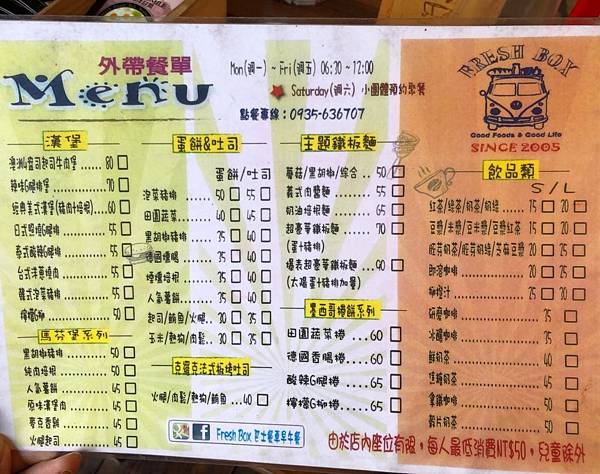 外帶餐單
Menu
Mon(週一) ~ Fri(週五) 06:30 ~ 12:00
Saturday(週六) 小團體預約聚餐
點餐專線:0935-636707
FRESH BOX
Good Foods & Good Life
SINCE 2005
漢堡
澳洲4盎司起司牛肉堡 ..... 80
辣味G腿排堡 ..... 70
經典美式漢堡(豬肉+培根) .. 60
日式照燒G腿排 ..... 55
泰式酸辣G腿排 ..... 55
台式洋蔥燒肉 ..... 55
韓式泡菜豬排 ..... 55
檸檬G柳 ..... 50
馬芬堡系列
黑胡椒豬排 ..... 50
純肉培根 ..... 50
人氣薯餅 ..... 45
原味漢堡肉 ..... 45
麥克香雞 ..... 45
火腿起司 ..... 45
蛋餅&吐司
蛋餅/吐司
泡菜豬排 ..... 50 55
田園蔬菜 ..... 40 45
黑胡椒豬排 ..... 35 40
德國燻腸 ..... 35 40
煙燻培根 ..... 35 40
人氣薯餅 ..... 35 40
起司/鮪魚/火腿 .. 30 35
玉米/熱狗/肉鬆 .. 30 35
克寧克法式板烤吐司
火腿/肉鬆/熱狗/鮪魚 .... 40
Fresh Box 巴士餐車早午餐
主題鐵板麵
蘑菇/黑胡椒/綜合 .. 50
義式肉醬麵 ..... 55
奶油培根麵 ..... 65
超豪華鐵板麵 ..... 70
(蛋+豬排)
爆表超豪華鐵板麵 .... 90
(太陽蛋+豬排加量)
墨西哥捲餅系列
田園蔬菜捲 ... 60
德國香腸捲 ... 65
酸辣G腿捲 ... 65
檸檬G柳捲 ... 65
飲品類
S / L
紅茶/綠茶/奶茶/奶綠 ..... 15 20
豆漿/米漿/豆米漿/豆漿紅茶 ... 15 20
胚芽奶茶/胚芽奶綠/芝麻豆漿 20 25
即溶咖啡 ..... 20 25
柳橙汁 ..... 25 30
研磨咖啡 ..... 35
冰釀咖啡 ..... 35
鮮奶茶 ..... 40
焦糖奶茶 ..... 50
拿鐵咖啡 ..... 50
穀片奶茶 ..... 50
由於店內座位有限，每人最低消費NT$50，兒童除外